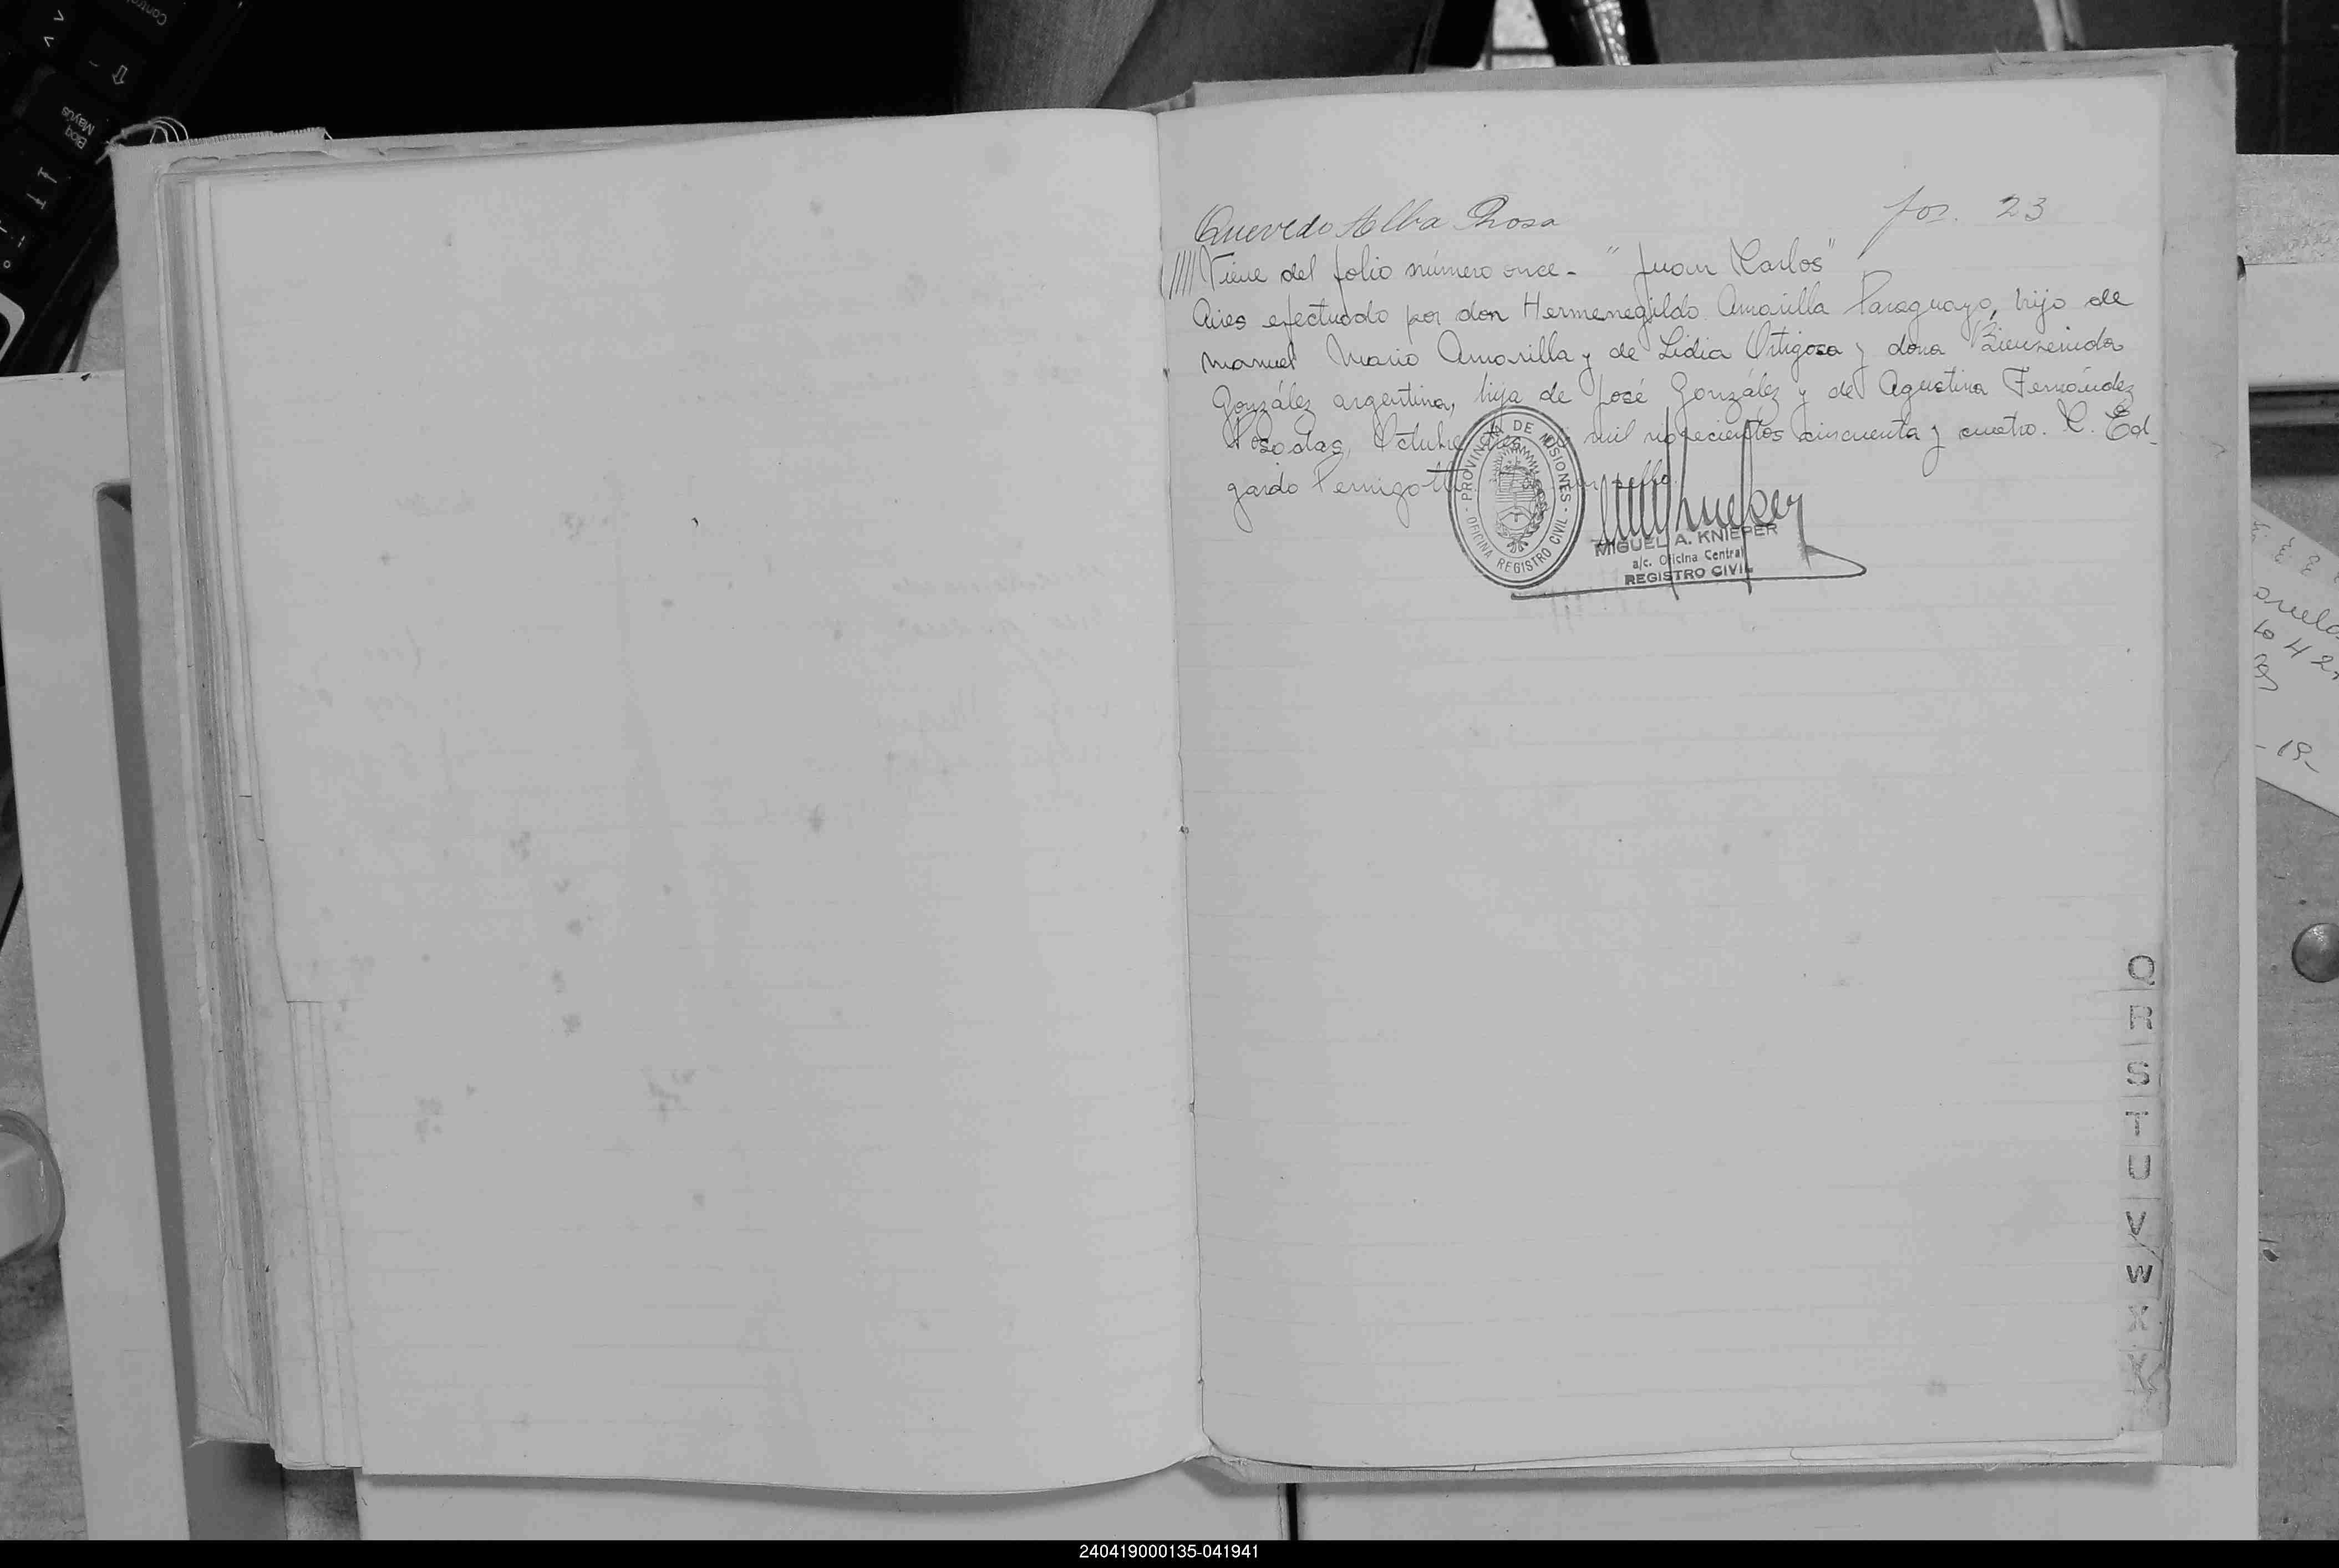 Quevedo Alba Rosa fos. 23
//// Viene del folio número once - "Juan Carlos"
Aires efectuado por don Hermenegildo Amarilla Paraguayo, hijo de
Manuel Mario Amarilla y de Lidia Ortigosa y doña Bienvenida
González argentina, hija de José González y de Agustina Fernández
Posadas, Octubre mil novecientos cincuenta y cuatro. C. Ed-
gardo
PROVINCIA DE MISIONES
- OFICINA REGISTRO CIVIL -
MIGUEL A. KNIEPER
a/c. Oficina Central
REGISTRO CIVIL
Q
R
S
T
U
V
W
X
Y
Bloq
Mayús
240419000135-041941